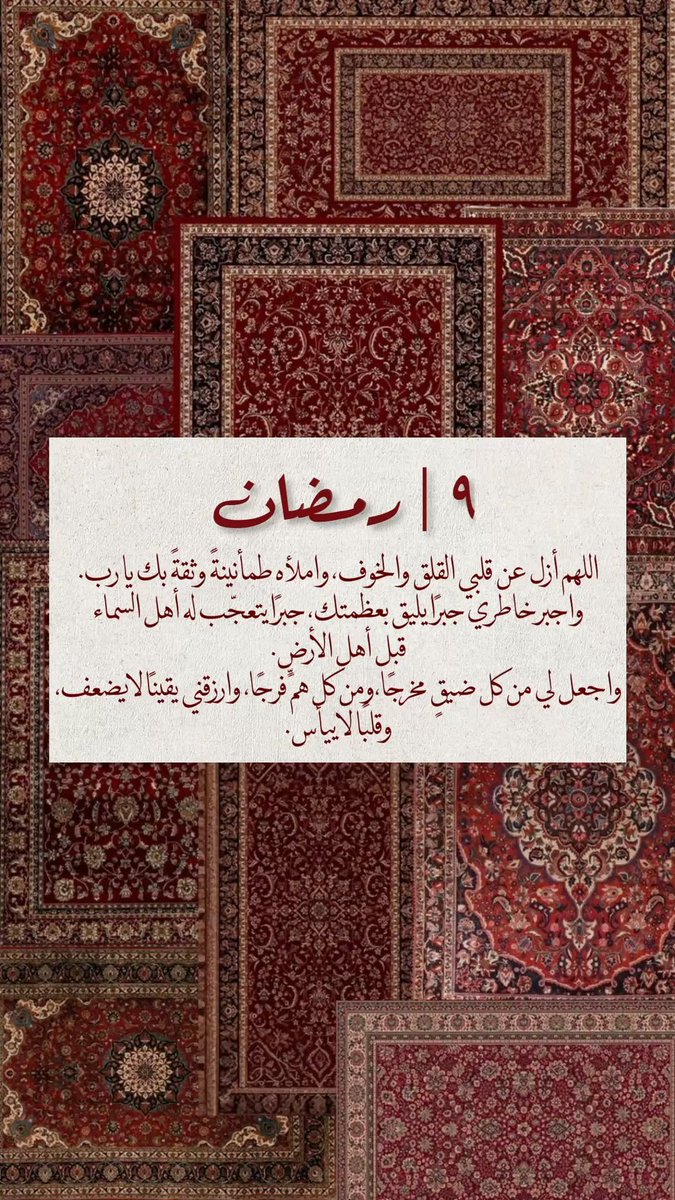 ٩ | رمضان
اللهم أزل عن قلبي القلق والخوف، واملأه طمأنينةً وثقةً بك يا رب.
واجبر خاطري جبرًا يليق بعظمتك، جبرًا يتعجّب له أهل السماء
قبل أهل الأرض.
واجعل لي من كل ضيقٍ مخرجًا، ومن كل همٍّ فرجًا، وارزقني يقينًا لا يضعف،
وقلبًا لا ييأس.